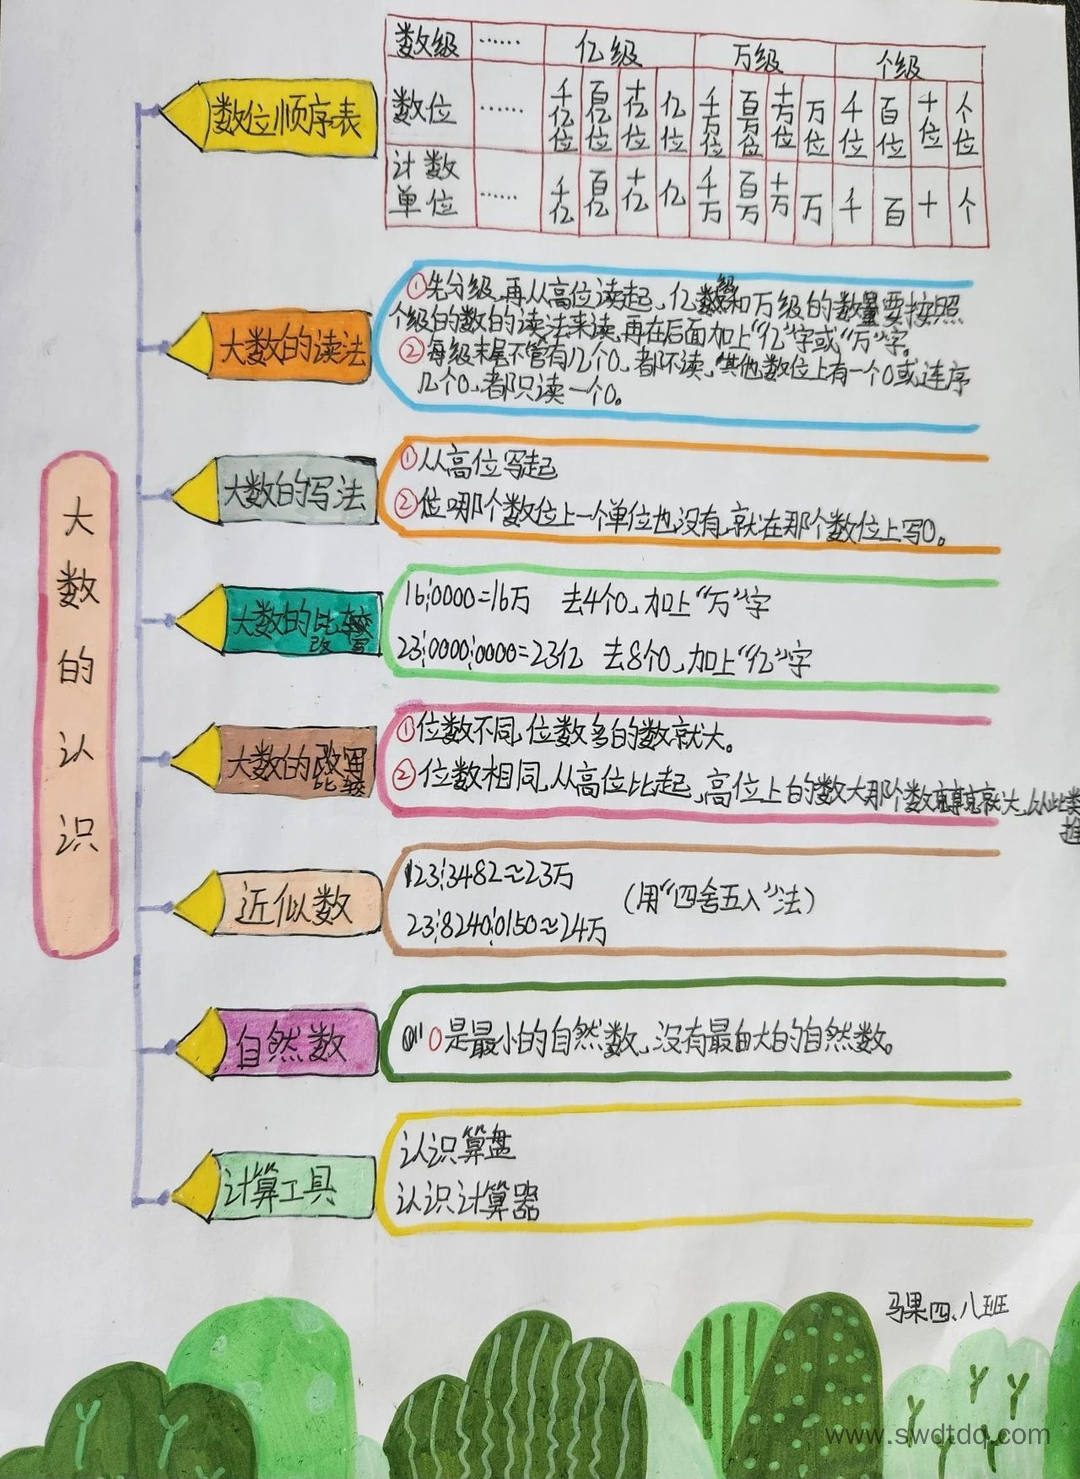 大数的认识
数位顺序表
数级 …… 亿级 万级 个级
数位 …… 千亿位 百亿位 十亿位 亿位 千万位 百万位 十万位 万位 千位 百位 十位 个位
计数单位 …… 千亿 百亿 十亿 亿 千万 百万 十万 万 千 百 十 个
大数的读法
①先分级,再从高位读起,亿级和万级的数量要按照
个级的数的读法来读,再在后面加上“亿”字或“万”字。
②每级末尾不管有几个0,都不读,其他数位上有一个0或连序
几个0,都只读一个0。
大数的写法
①从高位写起
②位哪个数位上一个单位也没有,就在那个数位上写0。
大数的改写
16¦0000=16万 去4个0,加上“万”字
23¦0000¦0000=23亿 去8个0,加上“亿”字
大数的比较
①位数不同,位数多的数就大。
②位数相同,从高位比起,高位上的数大那个数就大,以此类
推
近似数
23¦3482≈23万
23¦8240¦0150≈24万
(用“四舍五入”法)
自然数
0是最小的自然数,没有最大的自然数。
计算工具
认识算盘
认识计算器
四、八班
www.swdtdq.com